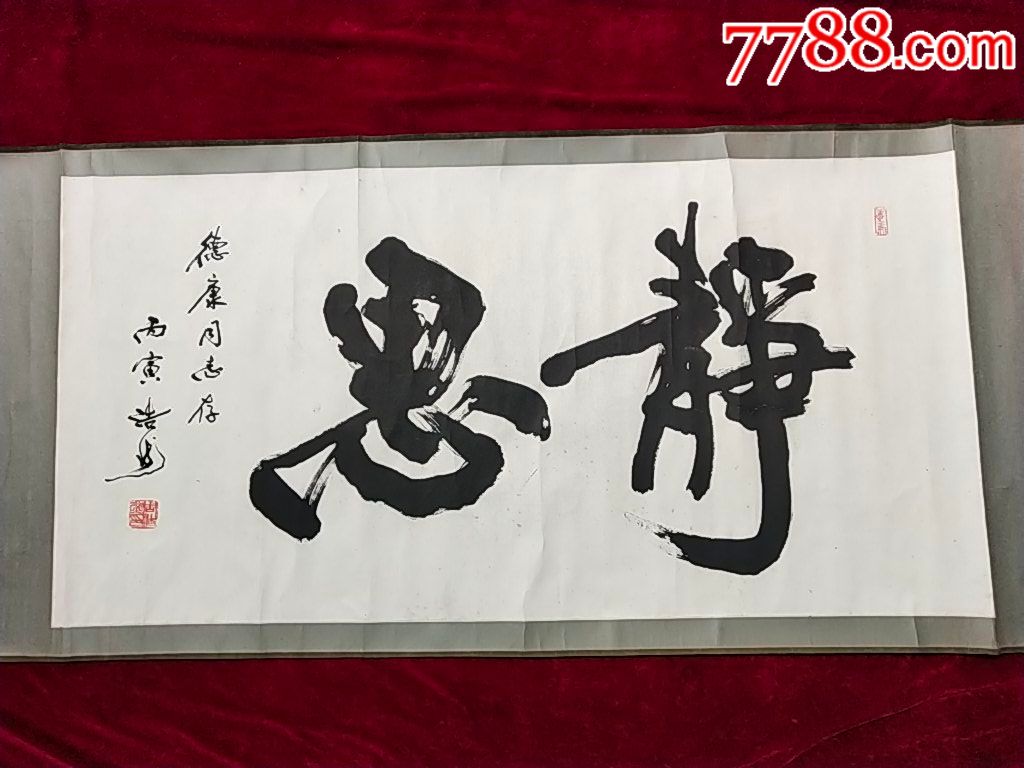 7788.com
靜思
德康同志存
丙寅 浩